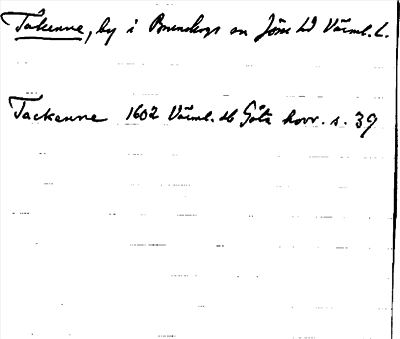 Takenne, by i Brunskogs sn Jösse hd Värml. L.
Tackenne 1602 Värml. sb Göta hovr. s. 39